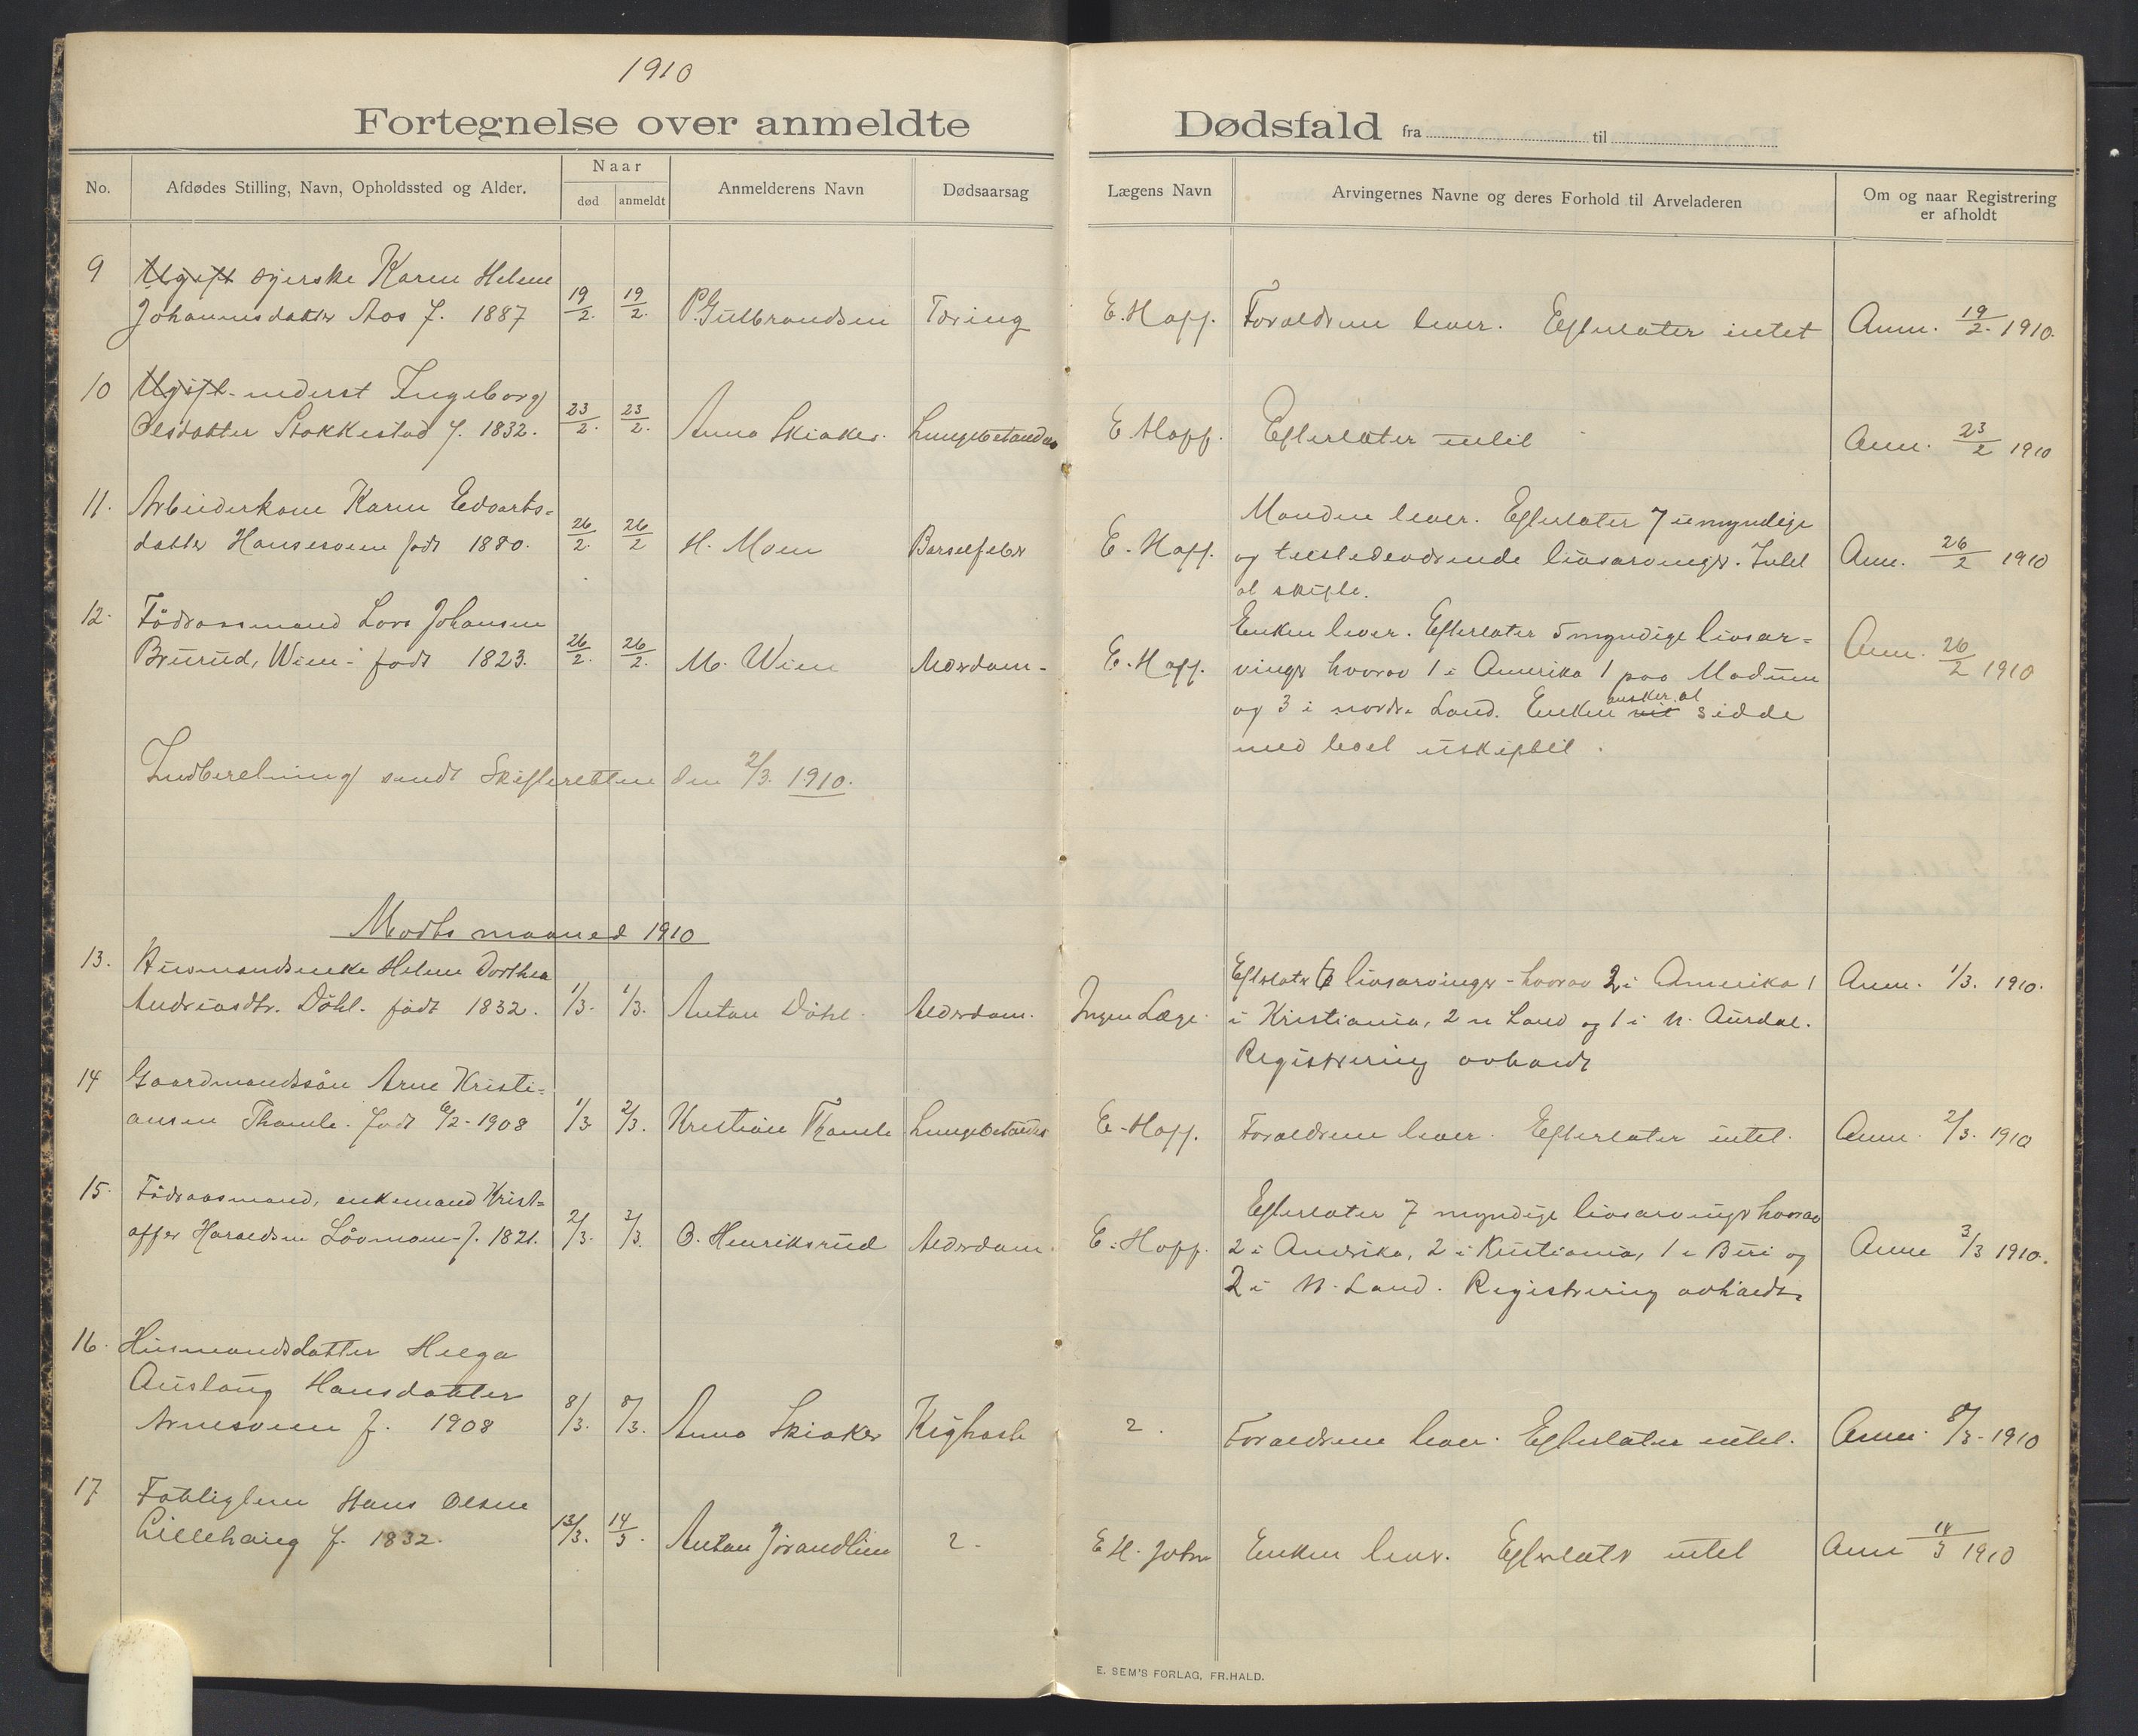 1910
Fortegnelse over anmeldte Dødsfald fra til
No. Afdødes Stilling, Navn, Opholdssted og Alder. Naar død anmeldt Anmelderens Navn Dødsaarsag Lægens Navn Arvingernes Navne og deres Forhold til Arveladeren Om og naar Registrering er afholdt
9 Ugift syerske Karen Helene
Johannesdatter Aos f. 1887 19/2. 19/2. P. Gulbrandsen Tæring E. Hoff. Forældrene lever. Efterlater intet Anm. 19/2. 1910.
10 Ugift inderst Ingeborg
Olesdatter Stokkestad f. 1832. 23/2. 23/2. Anna Skiaker. Lungebetændelse E Hoff. Efterlater intet Anm. 23/2 1910
11. Arbeiderkone Karen Edvarts=
datter Hansesveen født 1880. 26/2. 26/2 H. Moen Barselfeber E. Hoff.
Manden lever. Efterlater 7 umyndige
og tilstedeværende livsarvinger. Intet
at skifte.
Anm. 26/2 1910
12. Födraasmand Lars Johansen
Brurud, Wien - født 1823. 26/2. 26/2. M. Wien Alderdom - E. Hoff.
Enken lever. Efterlater 5 myndige livsar=
vinger hvorav 1 i Amerika 1 paa Modum
og 3 i nordre Land. Enken vil ønsker at sidde
med boet uskiftet.
Anm. 26/2 1910
Indberetning sendt Skifteretten den 2/3. 1910.
Marts maaned 1910
13. Husmandsenke Helene Dorthea
Andreasdtr. Döhl. født 1832. 1/3. 1/3. Anton Döhl. Alderdom. Ingen Læge.
Efterlater 6 livsarvinger - hvorav 2 i Amerika 1
i Kristiania, 2 n Land og 1 i N. Aurdal.
Registrering avholdt
Anm. 1/3. 1910.
14 Gaardmandssön Arne Kristi=
ansen Thomle. født 6/2 - 1908 1/3 2/3. Kristian Thomle Lungebetændelse E. Hoff. Forældrene lever. Efterlater intet. Anm. 2/3. 1910
15. Födraasmand, enkemand Krist=
offer Haraldsen Lövmoen f. 1821. 2/3. 3/3. O. Henriksrud Alderdom. E. Hoff.
Efterlater 7 myndige livsarvinger hvorav
2 i Amerika, 2 i Kristiania, 1 i Biri og
2 i N. Land. Registrering avholdt.
Anm 3/3 1910.
16. Husmandsdatter Helga
Auslaug Hansdatter
Arnesveen f. 1908 8/3. 8/3. Anna Skiaker Kighoste ? . Forældrene lever. Efterlater intet. Anm. 8/3 - 1910
17 Fattiglem Hans Olsen
Lillehaug f. 1832. 13/3. 14/3. Anton Jörandlien ? - E H. John Enken lever. Efterlater intet Anm 14/3 1910
E. SEM'S FORLAG, FR.HALD.